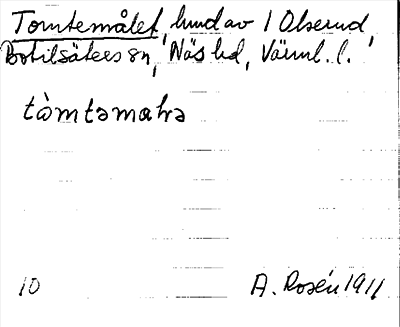 Tomtemålet, hmd av 1 Olserud,
Botilsäters sn, Näs hd, Värml. l.
tòmtəmalrə
10 A. Rosén 1911